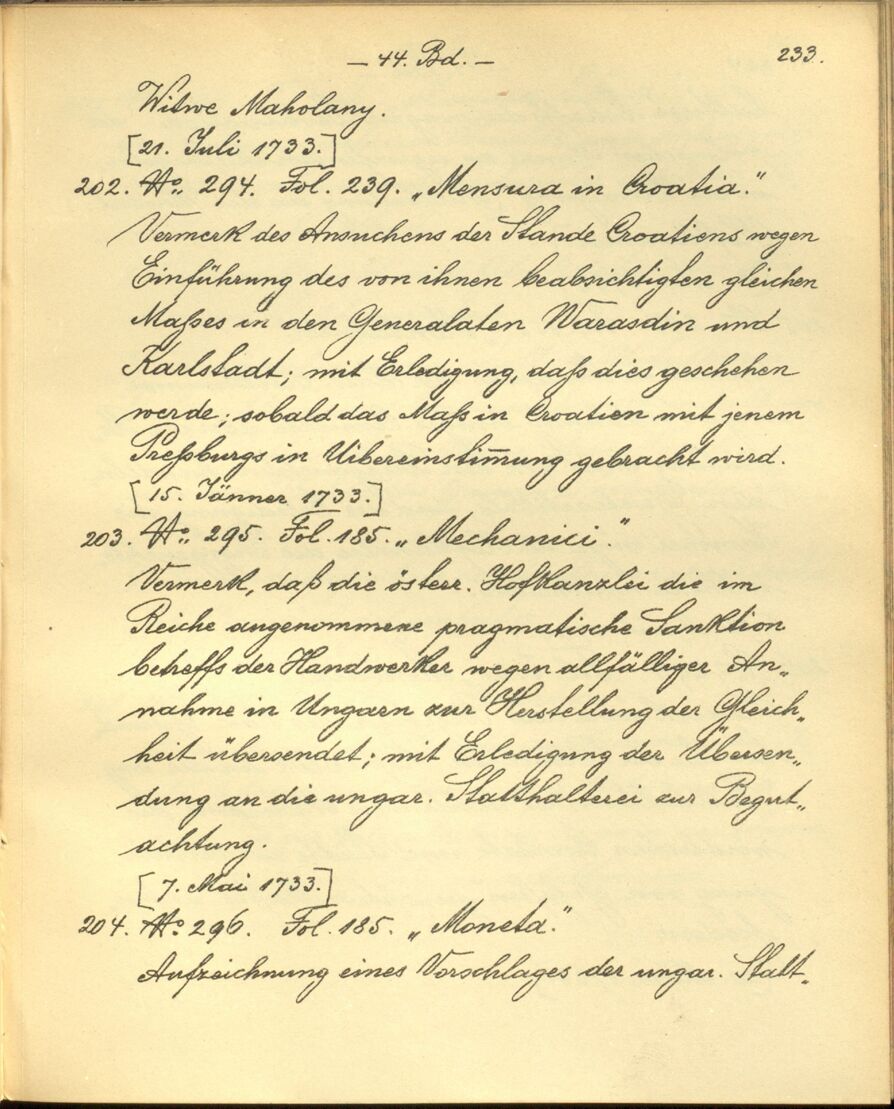 — 44. Bd. —
233.
Witwe Maholany.
[21. Juli 1733.]
202. No. 294. Fol. 239. „Mensura in Croatia."
Vermerk des Ansuchens der Stande Croatiens wegen
Einführung des von ihnen beabsichtigten gleichen
Maßes in den Generalaten Warasdin und
Karlstadt; mit Erledigung, daß dies geschehen
werde; sobald das Maß in Croatien mit jenem
Preßburgs in Uibereinstim̄ung gebracht wird.
[15. Jänner 1733.]
203. No. 295. Fol. 185. „Mechanici."
Vermerk, daß die österr. Hofkanzlei die im
Reiche angenommene pragmatische Sanktion
betreffs der Handwerker wegen allfälliger An„
nahme in Ungarn zur Herstellung der Gleich„
heit übersendet; mit Erledigung der Übersen„
dung an die ungar. Statthalterei zur Begut„
achtung.
[7. Mai 1733.]
204. No. 296. Fol. 185. „Moneta."
Aufzeichnung eines Vorschlages der ungar. Statt„